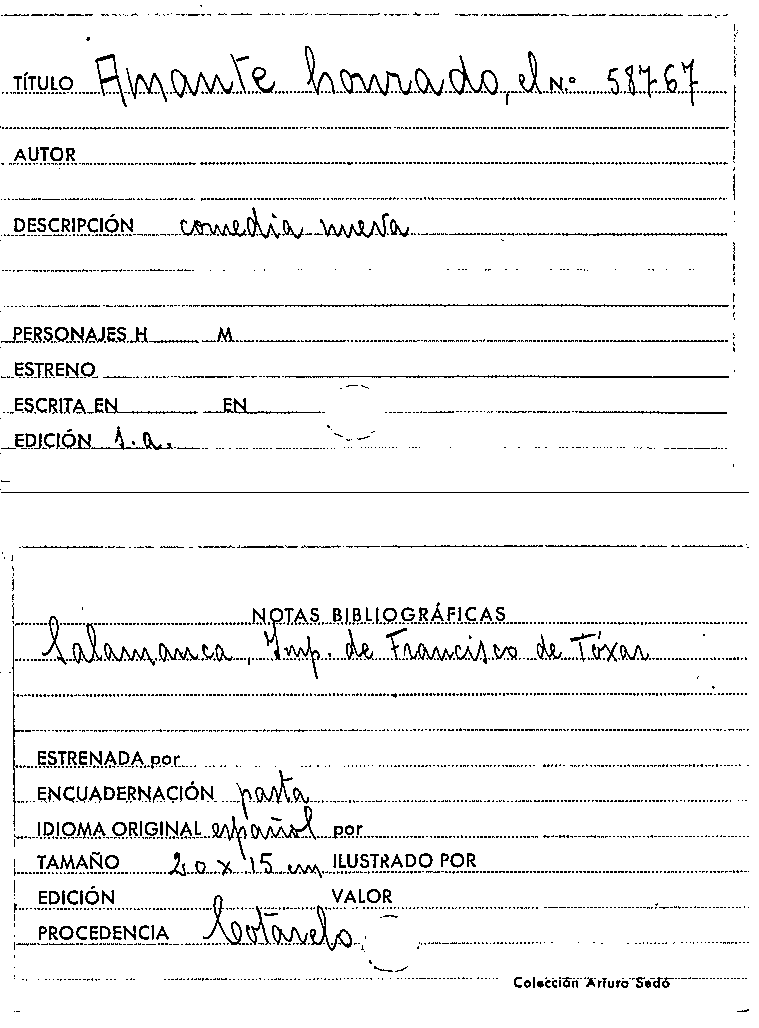 TÍTULO Amante honrado, el N.º 58767
AUTOR
DESCRIPCIÓN comedia nueva
PERSONAJES H M
ESTRENO
ESCRITA EN EN
EDICIÓN s.a.
NOTAS BIBLIOGRÁFICAS
Salamanca, Imp. de Francisco de Tóxar
ESTRENADA por
ENCUADERNACIÓN pasta
IDIOMA ORIGINAL español por
TAMAÑO 20 x 15 cm ILUSTRADO POR
EDICIÓN VALOR
PROCEDENCIA Cotarelo
Colección Arturo Sedó